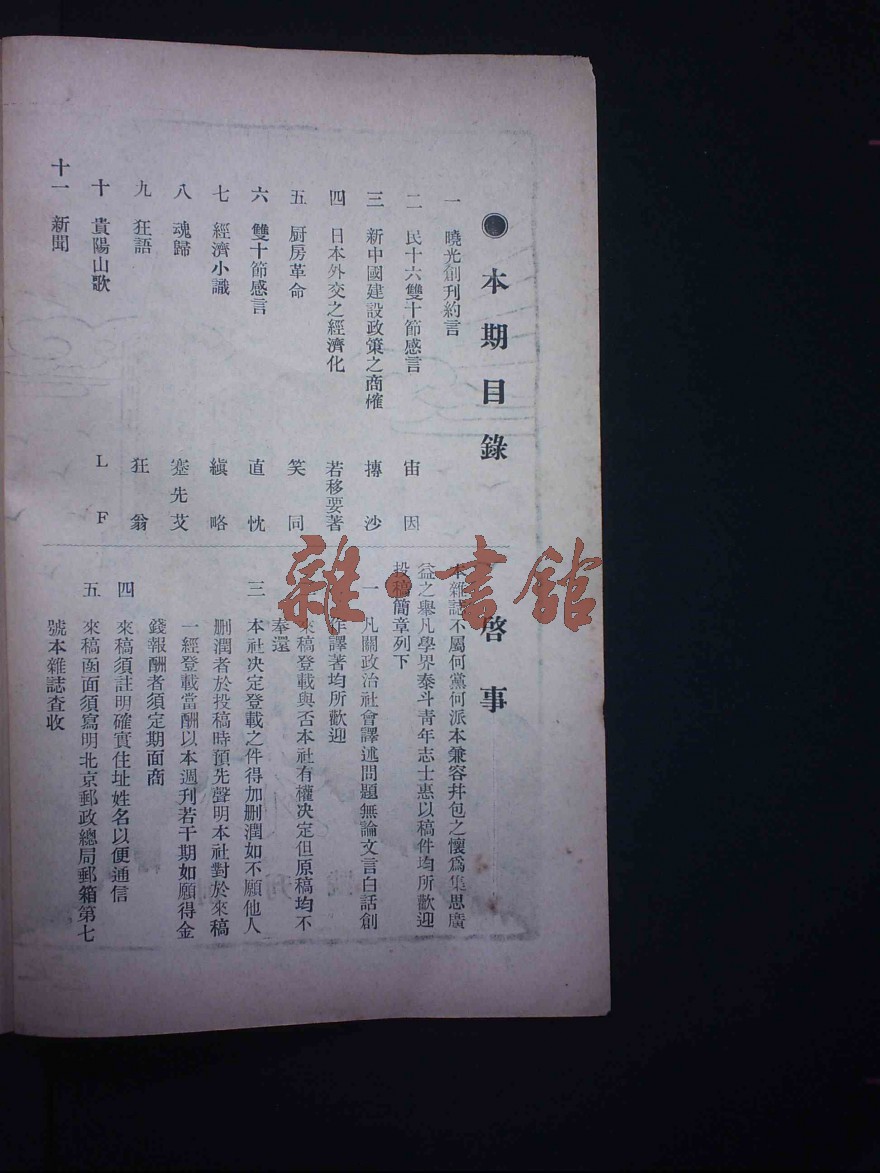 本期目錄
一　曉光創刊約言
二　民十六雙十節感言　宙因
三　新中國建設政策之商榷　摶沙
四　日本外交之經濟化　若移要著
五　厨房革命　笑同
六　雙十節感言　直忱
七　經濟小識　縝略
八　魂歸　蹇先艾
九　狂語　狂翁
十　貴陽山歌　LF
十一　新聞
啓事
本雜誌不屬何黨何派本兼容幷包之懷爲集思廣
益之舉凡學界泰斗靑年志士惠以稿件均所歡迎
投稿簡章列下
一　凡關政治社會譯述問題無論文言白話創
作譯著均所歡迎
來稿登載與否本社有權决定但原稿均不
奉還
三　本社决定登載之件得加删潤如不願他人
删潤者於投稿時預先聲明本社對於來稿
一經登載當酬以本週刊若干期如願得金
錢報酬者須定期面商
四　來稿須註明確實住址姓名以便通信
五　來稿函面須寫明北京郵政總局郵箱第七
號本雜誌查收
雜·書館